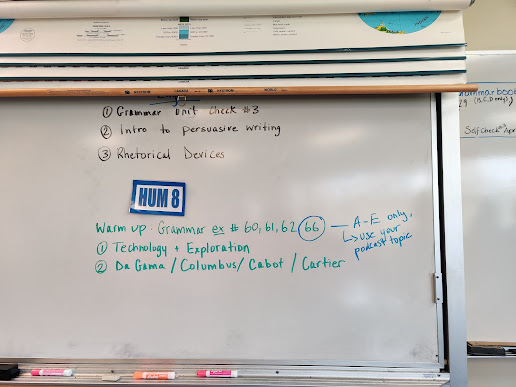 ① Grammar Unit Check #3
② Intro to persuasive writing
③ Rhetorical Devices
HUM 8
Warm up: Grammar ex # 60, 61, 62, 66 — A-E only.
↳ use your
podcast topic
① Technology + Exploration
② Da Gama / Columbus / Cabot / Cartier
(B,C,D only)
Self Check